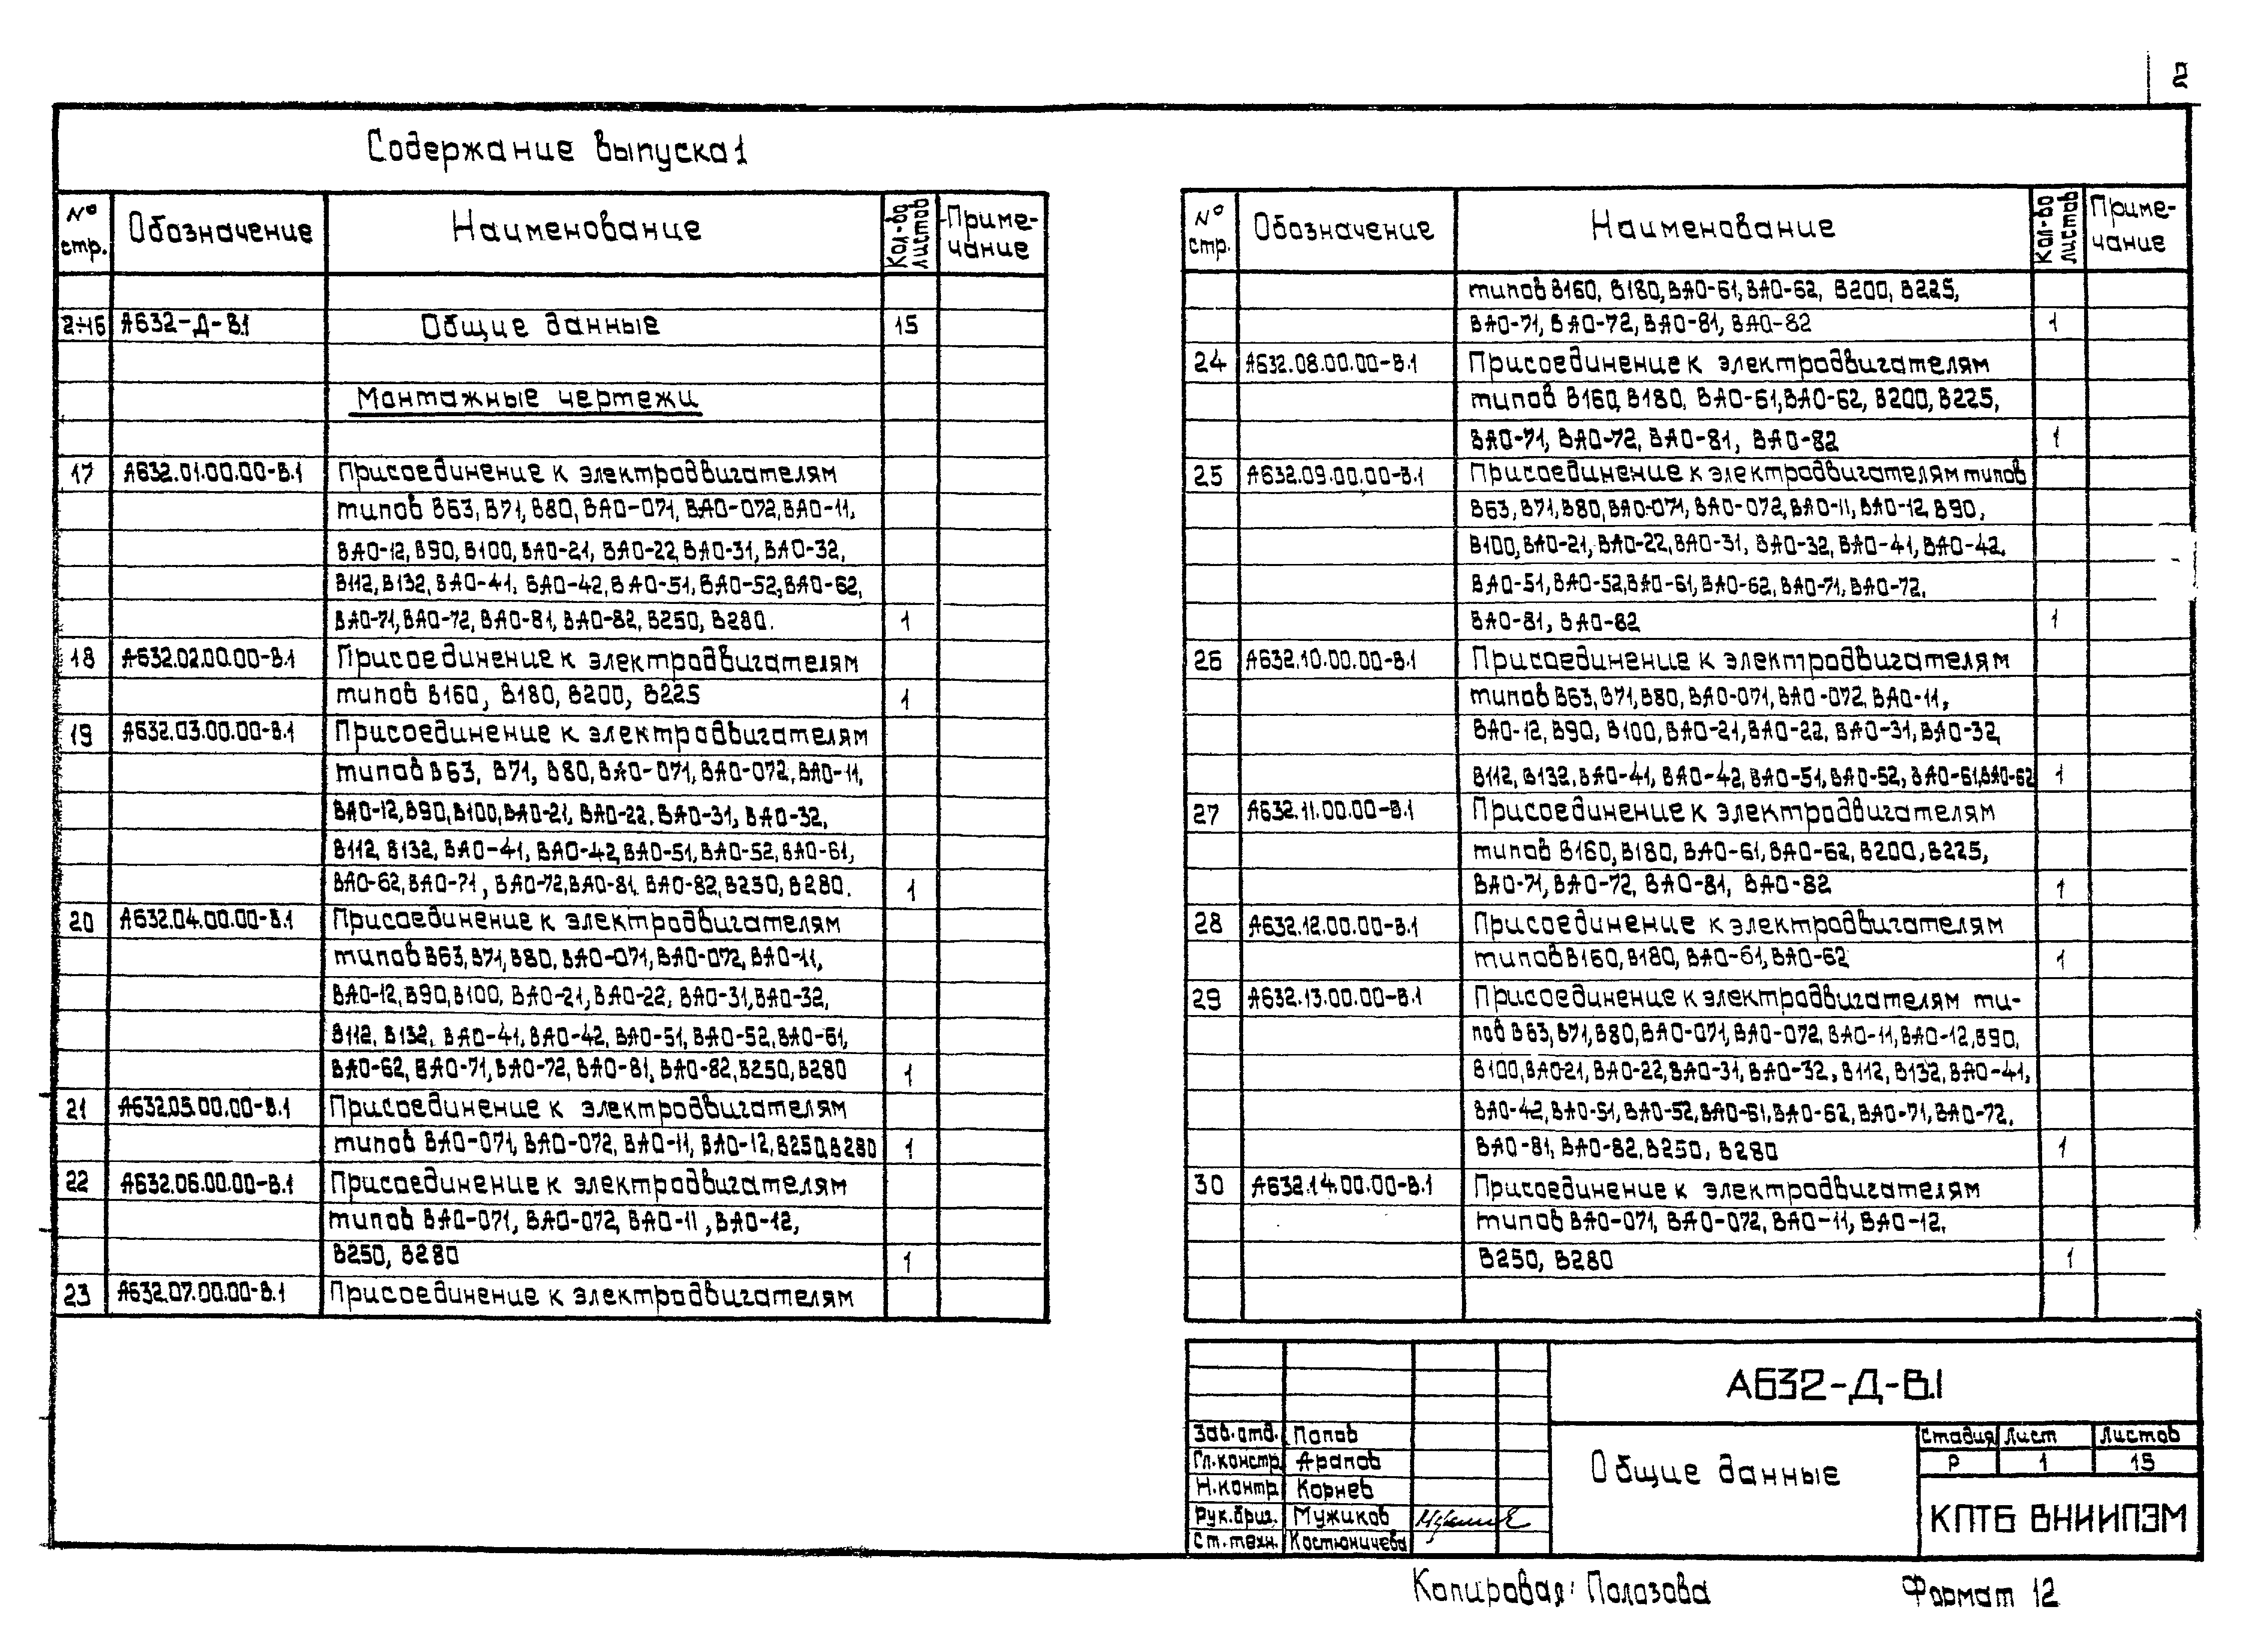 2
Содержание выпуска 1
№ стр. Обозначение Наименование Кол-во листов Приме-чание
2÷16 А632-Д-В.1 Общие данные 15
Монтажные чертежи
17 А632.01.00.00-В.1 Присоединение к электродвигателям
типов В63, В71, В80, ВАО-071, ВАО-072, ВАО-11,
ВАО-12, В90, В100, ВАО-21, ВАО-22, ВАО-31, ВАО-32,
В112, В132, ВАО-41, ВАО-42, ВАО-51, ВАО-52, ВАО-62,
ВАО-71, ВАО-72, ВАО-81, ВАО-82, В250, В280. 1
18 А632.02.00.00-В.1 Присоединение к электродвигателям
типов В160, В180, В200, В225 1
19 А632.03.00.00-В.1 Присоединение к электродвигателям
типов В63, В71, В80, ВАО-071, ВАО-072, ВАО-11,
ВАО-12, В90, В100, ВАО-21, ВАО-22, ВАО-31, ВАО-32,
В112, В132, ВАО-41, ВАО-42, ВАО-51, ВАО-52, ВАО-61,
ВАО-62, ВАО-71, ВАО-72, ВАО-81, ВАО-82, В250, В280. 1
20 А632.04.00.00-В.1 Присоединение к электродвигателям
типов В63, В71, В80, ВАО-071, ВАО-072, ВАО-11,
ВАО-12, В90, В100, ВАО-21, ВАО-22, ВАО-31, ВАО-32,
В112, В132, ВАО-41, ВАО-42, ВАО-51, ВАО-52, ВАО-61,
ВАО-62, ВАО-71, ВАО-72, ВАО-81, ВАО-82, В250, В280 1
21 А632.05.00.00-В.1 Присоединение к электродвигателям
типов ВАО-071, ВАО-072, ВАО-11, ВАО-12, В250, В280 1
22 А632.06.00.00-В.1 Присоединение к электродвигателям
типов ВАО-071, ВАО-072, ВАО-11, ВАО-12,
В250, В280 1
23 А632.07.00.00-В.1 Присоединение к электродвигателям
№ стр. Обозначение Наименование Кол-во листов Приме-чание
типов В160, В180, ВАО-61, ВАО-62, В200, В225,
ВАО-71, ВАО-72, ВАО-81, ВАО-82 1
24 А632.08.00.00-В.1 Присоединение к электродвигателям
типов В160, В180, ВАО-61, ВАО-62, В200, В225,
ВАО-71, ВАО-72, ВАО-81, ВАО-82 1
25 А632.09.00.00-В.1 Присоединение к электродвигателям типов
В63, В71, В80, ВАО-071, ВАО-072, ВАО-11, ВАО-12, В90,
В100, ВАО-21, ВАО-22, ВАО-31, ВАО-32, ВАО-41, ВАО-42,
ВАО-51, ВАО-52, ВАО-61, ВАО-62, ВАО-71, ВАО-72,
ВАО-81, ВАО-82 1
26 А632.10.00.00-В.1 Присоединение к электродвигателям
типов В63, В71, В80, ВАО-071, ВАО-072, ВАО-11,
ВАО-12, В90, В100, ВАО-21, ВАО-22, ВАО-31, ВАО-32,
В112, В132, ВАО-41, ВАО-42, ВАО-51, ВАО-52, ВАО-61, ВАО-62 1
27 А632.11.00.00-В.1 Присоединение к электродвигателям
типов В160, В180, ВАО-61, ВАО-62, В200, В225,
ВАО-71, ВАО-72, ВАО-81, ВАО-82 1
28 А632.12.00.00-В.1 Присоединение к электродвигателям
типов В160, В180, ВАО-61, ВАО-62 1
29 А632.13.00.00-В.1 Присоединение к электродвигателям ти-
пов В63, В71, В80, ВАО-071, ВАО-072, ВАО-11, ВАО-12, В90,
В100, ВАО-21, ВАО-22, ВАО-31, ВАО-32, В112, В132, ВАО-41,
ВАО-42, ВАО-51, ВАО-52, ВАО-61, ВАО-62, ВАО-71, ВАО-72,
ВАО-81, ВАО-82, В250, В280 1
30 А632.14.00.00-В.1 Присоединение к электродвигателям
типов ВАО-071, ВАО-072, ВАО-11, ВАО-12,
В250, В280 1
А632-Д-В.1
Зав. отд. Попов
Гл. констр. Арапов
Н. контр. Корнев
Рук. бриг. Мужиков
Ст. техн. Костюничева
Общие данные
Стадия Лист Листов
Р 1 15
КПТБ ВНИИПЭМ
Копировал: Полозова Формат 12